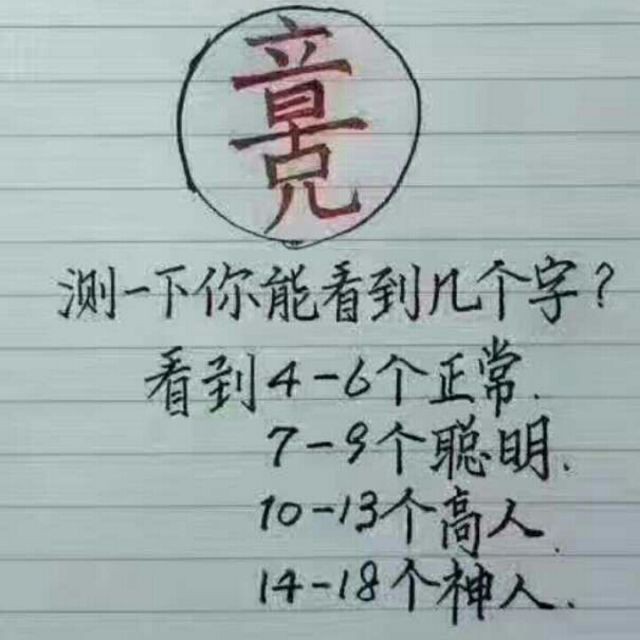 测一下你能看到几个字?
看到4-6个正常.
7-9个聪明.
10-13个高人.
14-18个神人.